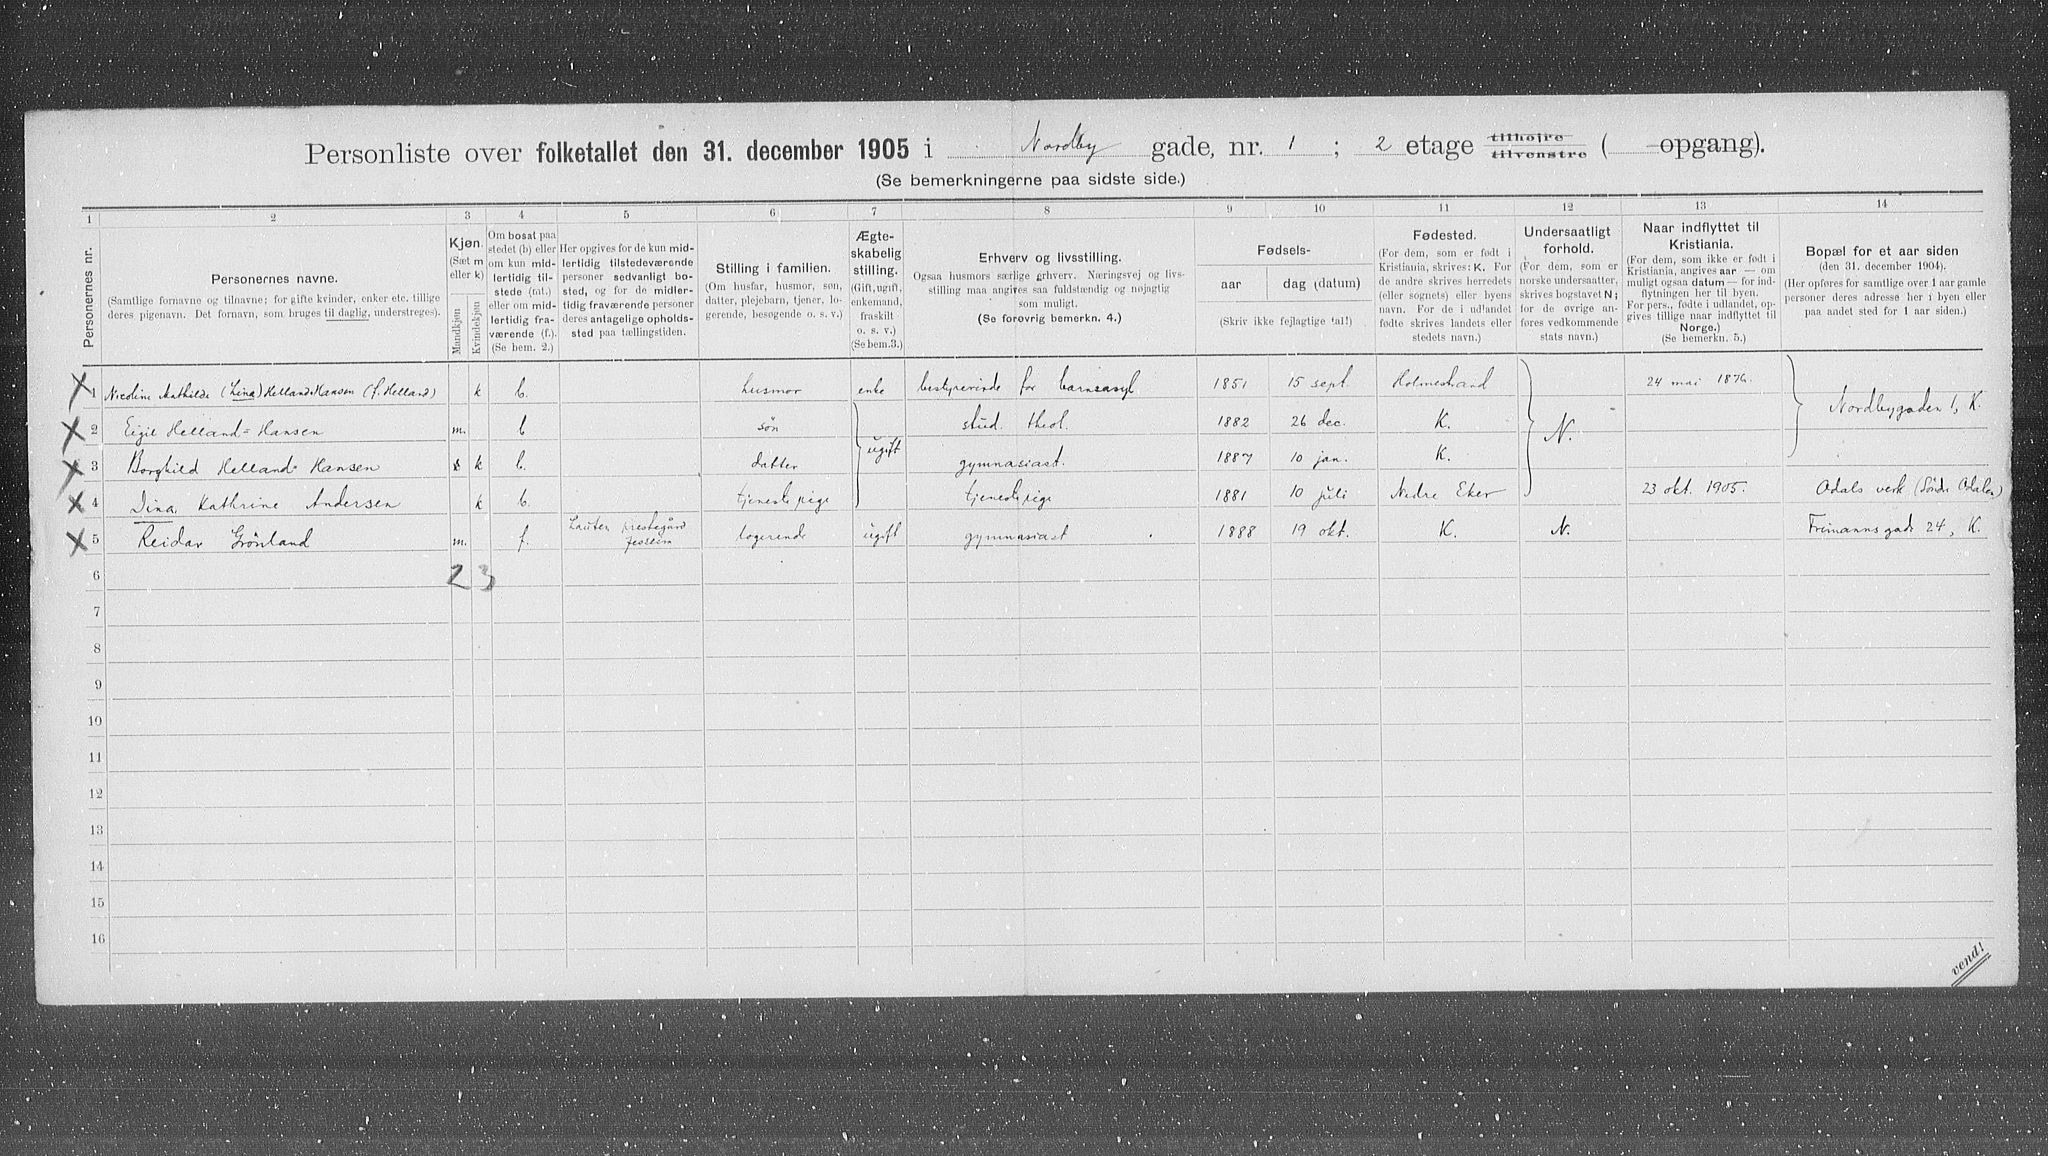 Personliste over folketallet den 31. december 1905 i Nordby gade, nr. 1 ; 2 etage tilhøjre tilvenstre ( opgang).
(Se bemerkningerne paa sidste side.)
1 2 3 4 5 6 7 8 9 10 11 12 13 14
Personernes nr.
Personernes navne.
(Samtlige fornavne og tilnavne; for gifte kvinder, enker etc. tillige
deres pigenavn. Det fornavn, som bruges til daglig, understreges).
Kjøn.
(Sæt m
eller k)
Mandkjøn
Kvindekjøn
Om bosat paa
stedet (b) eller
om kun mid-
lertidig til-
stede (mt.)
eller om mid-
lertidig fra-
værende (f.).
(Se bem. 2.)
Her opgives for de kun mid-
lertidig tilstedeværende
personer sedvanligt bo-
sted, og for de midler-
tidig fraværende personer
deres antagelige opholds-
sted paa tællingstiden.
Stilling i familien.
(Om husfar, husmor, søn,
datter, plejebarn, tjener, lo-
gerende, besøgende o. s. v.)
Ægte-
skabelig
stilling.
(Gift, ugift,
enkemand,
fraskilt
o. s. v.)
(Se bem.3.)
Erhverv og livsstilling.
Ogsaa husmors særlige erhverv. Næringsvej og livs-
stilling maa angives saa fuldstændig og nøjagtig
som muligt.
(Se forøvrig bemerkn. 4.)
Fødsels-
aar
dag (datum)
(Skriv ikke fejlagtige tal!)
Fødested.
(For dem, som er født i
Kristiania, skrives: K. For
de andre skrives herredets
(eller sognets) eller byens
navn. For de i udlandet
fødte skrives landets eller
stedets navn.)
Undersaatligt
forhold.
(For dem, som er
norske undersaatter,
skrives bogstavet N;
for de øvrige an-
føres vedkommende
stats navn.)
Naar indflyttet til
Kristiania.
(For dem, som ikke er født i
Kristiania, angives aar — om
muligt ogsaa datum — for ind-
flytningen her til byen.
For pers., fødte i udlandet, op-
gives tillige naar indflyttet til
Norge.)
(Se bemerkn. 5.)
Bopæl for et aar siden
(den 31. december 1904).
(Her opføres for samtlige over 1 aar gamle
personer deres adresse her i byen eller
paa andet sted for 1 aar siden.)
1 Nicoline Mathilde (Lina) Helland-Hansen (f. Helland) k b. husmor enke bestyrerinde for barnasyl. 1851 15 sept. Holmestrand 24 mai 1876
2 Eigil Helland-Hansen m. b søn stud. theol. 1882 26 dec. K. N. Nordbygaden 1, K.
3 Borghild Helland-Hansen k b. datter ugift gymnasiast. 1887 10 jan. K.
4 Dina Kathrine Andersen k b. tjenestepige tjenestepige 1881 10 juli Nedre Eker 23 okt. 1905. Odals verk (Søndre Odalen)
5 Reidar Grönland m. f. prestegård logerende ugift gymnasiast 1888 19 okt. K. N. Frimannsgade 24, K.
6 2 3
7
8
9
10
11
12
13
14
15
16
vend!